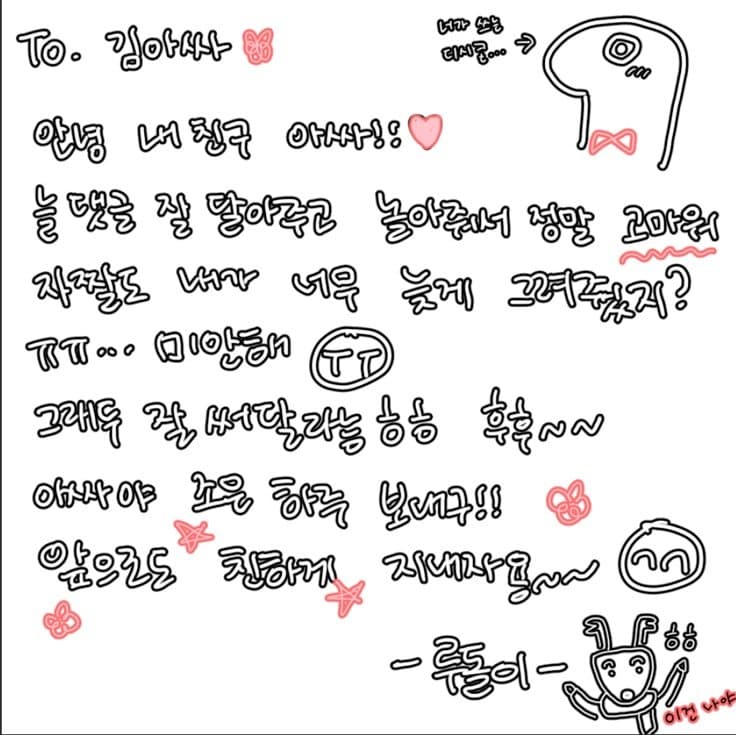 To. 김아싸
너가 쓰는
디시콘... →
안녕 내 친구 아싸!!
늘 댓글 잘 달아주고 놀아줘서 정말 고마워
자짤도 내가 너무 늦게 그려줬지?
ㅠㅠ... 미안해
그래두 잘 써달라능 ㅎㅎ 후후~~
아싸야 조은 하루 보내구!!
앞으로도 친하게 지내자용~~
- 루돌이 -
ㅎㅎ
이건 나야